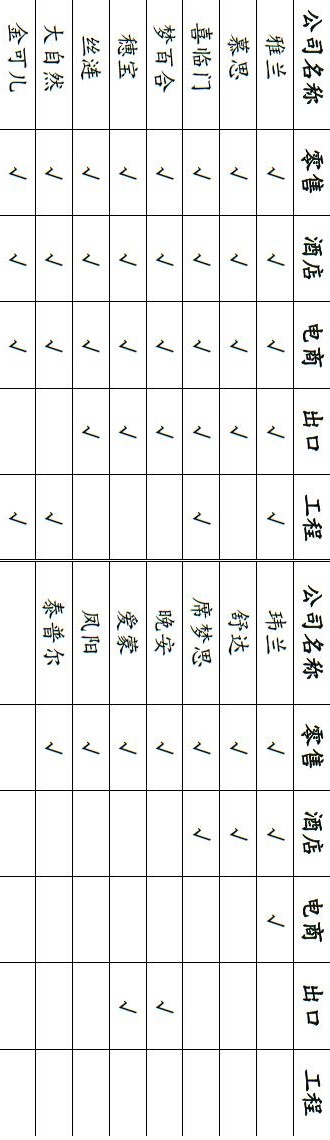 公司名称 零售 酒店 电商 出口 工程 公司名称 零售 酒店 电商 出口 工程
雅兰 √ √ √ √ √ 玮兰 √ √ √
慕思 √ √ √ √ 舒达 √ √
喜临门 √ √ √ √ √ 席梦思 √ √
梦百合 √ √ √ √ 晚安 √ √
穗宝 √ √ √ √ 爱蒙 √ √
丝涟 √ √ √ √ 凤阳 √
大自然 √ √ √ √ 泰普尔 √
金可儿 √ √ √ √